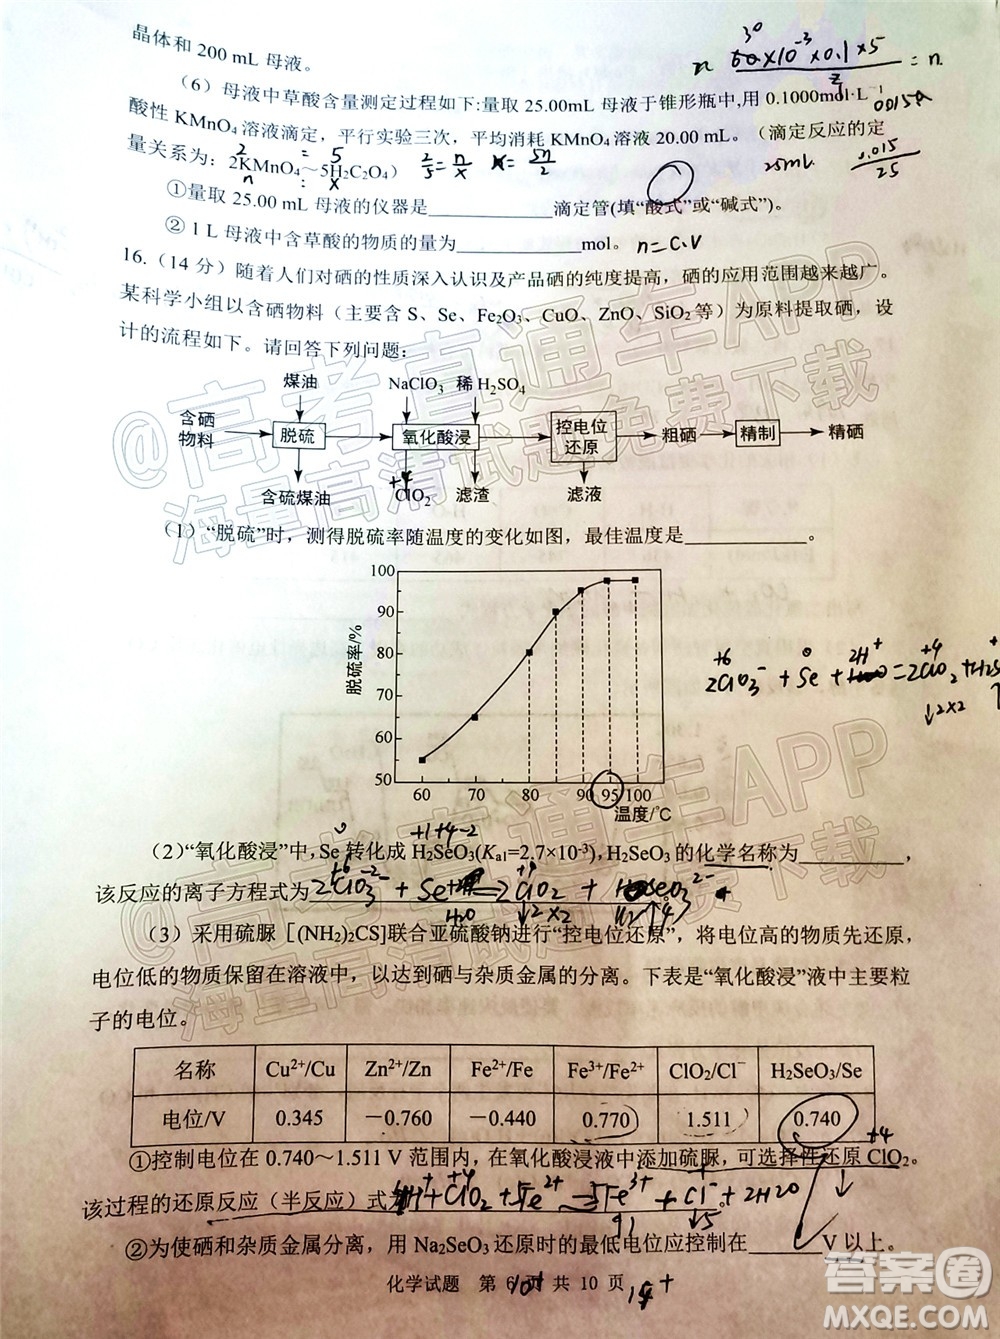 晶体和 200 mL 母液。
（6）母液中草酸含量测定过程如下:量取 25.00mL 母液于锥形瓶中,用 0.1000mol·L⁻¹
酸性 KMnO₄ 溶液滴定，平行实验三次，平均消耗 KMnO₄ 溶液 20.00 mL。（滴定反应的定
量关系为：2KMnO₄～5H₂C₂O₄）
25mL
0.015
25
①量取 25.00 mL 母液的仪器是____________滴定管(填“酸式”或“碱式”)。
② 1 L 母液中含草酸的物质的量为____________mol。 n=C.V
16.（14 分）随着人们对硒的性质深入认识及产品硒的纯度提高，硒的应用范围越来越广。
某科学小组以含硒物料（主要含 S、Se、Fe₂O₃、CuO、ZnO、SiO₂ 等）为原料提取硒，设
计的流程如下。请回答下列问题：
煤油 NaClO₃ 稀 H₂SO₄
含硒物料 脱硫 氧化酸浸 控电位还原 粗硒 精制 精硒
含硫煤油 ClO₂ 滤渣 滤液
（1）“脱硫”时，测得脱硫率随温度的变化如图，最佳温度是____________。
脱硫率/%
100
90
80
70
60
50
60 70 80 90 95 100
温度/℃
（2）“氧化酸浸”中, Se 转化成 H₂SeO₃(Kₐ₁=2.7×10⁻³), H₂SeO₃ 的化学名称为____________,
该反应的离子方程式为
（3）采用硫脲［(NH₂)₂CS]联合亚硫酸钠进行“控电位还原”，将电位高的物质先还原，
电位低的物质保留在溶液中，以达到硒与杂质金属的分离。下表是“氧化酸浸”液中主要粒
子的电位。
名称 Cu²⁺/Cu Zn²⁺/Zn Fe²⁺/Fe Fe³⁺/Fe²⁺ ClO₂/Cl⁻ H₂SeO₃/Se
电位/V 0.345 −0.760 −0.440 0.770 1.511 0.740
①控制电位在 0.740～1.511 V 范围内，在氧化酸浸液中添加硫脲，可选择性还原 ClO₂。
该过程的还原反应（半反应）式为
②为使硒和杂质金属分离，用 Na₂SeO₃ 还原时的最低电位应控制在________V 以上。
化学试题 第 6 页 共 10 页
@高考直通车APP
海量高清试题免费下载
@高考直通车APP
海量高清试题免费下载
答案圈
MXQE.COM